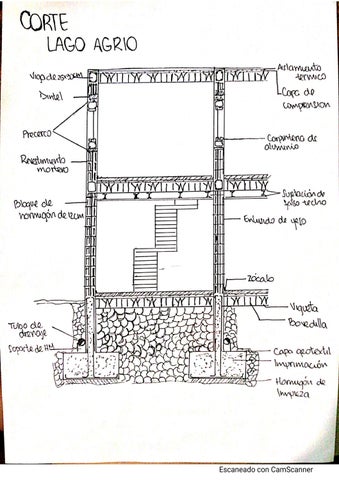 CORTE
LAGO AGRIO
Viga de
Dintel
Precerco
Revestimiento
mortero
Bloque de
hormigón de 12cm
Tubo de
drenaje
Soporte de HM
Aislamiento
térmico
Capa de
compresion
Carpinteria de
aluminio
yeso techo
Enlucido de yeso
Zócalo
Vigueta
Bovedilla
Capa geotextil
Imprimación
Hormigon de
limpieza
Escaneado con CamScanner